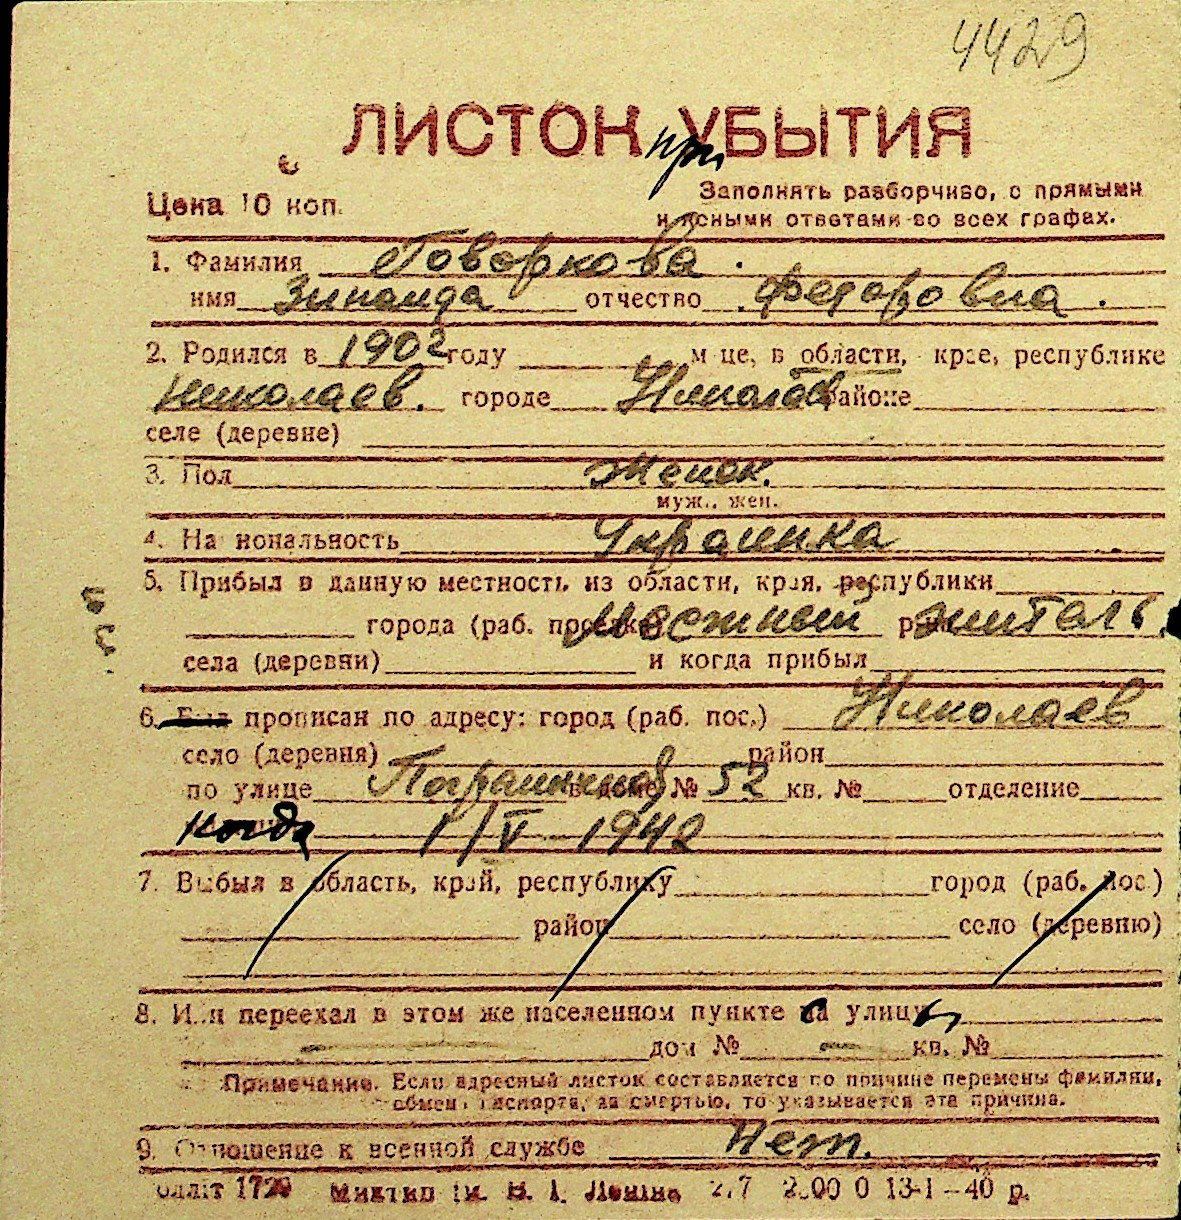 4429
ЛИСТОК при УБЫТИЯ
Цена 10 коп.
Заполнять разборчиво, с прямыми
и ясными ответами во всех графах.
1. Фамилия Говоркова.
имя Зинаида отчество Федоровна.
2. Родился в 1902 году м-це, в области, крае, республике
Николаев. городе Николаев районе
селе (деревне)
3. Пол Женск.
муж., жен.
4. Национальность Украинка
5. Прибыл в данную местность из области, края, республики
города (раб. поселка) Местный житель.
села (деревни) и когда прибыл
6. Был прописан по адресу: город (раб. пос.) Николаев
село (деревня) район
по улице Пограничной в доме № 52 кв. № отделение
когда 1/V 1942
7. Выбыл в область, край, республику город (раб. пос.)
район село (деревню)
8. Или переехал в этом же населенном пункте на улицу
— дом № — кв. №
Примечание. Если адресный листок составляется по причине перемены фамилии,
обмена паспорта, за смертью, то указывается эта причина.
9. Отношение к военной службе Нет.
1729 Ленина 13-1-40 р.